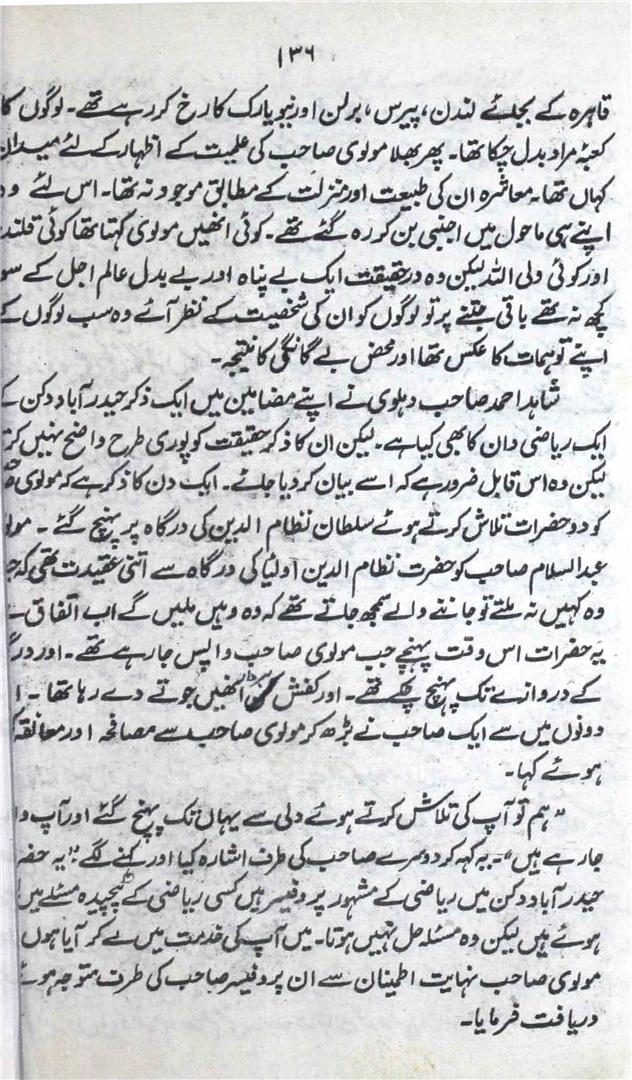 ۱۳۶
قاہرہ کے بجائے لندن، پیرس، برلن اور نیویارک کا رخ کر رہے تھے۔ لوگوں کا
کعبۂ مراد بدل چکا تھا۔ پھر بھلا مولوی صاحب کی علمیت کے اظہار کے لئے میدان
کہاں تھا۔ معاشرہ ان کی طبیعت اور منزلت کے مطابق موجود نہ تھا۔ اس لئے وہ
اپنے ہی ماحول میں اجنبی بن کر رہ گئے تھے۔ کوئی انھیں مولوی کہتا تھا کوئی قلند
اور کوئی ولی اللہ لیکن وہ درحقیقت ایک بے پناہ اور بے بدل عالم اجل کے سو
کچھ نہ تھے باقی جتنے پر تو لوگوں کو ان کی شخصیت کے نظر آئے وہ سب لوگوں کے
اپنے توہمات کا عکس تھا اور محض بے گانگی کا نتیجہ۔
شاہد احمد صاحب دہلوی نے اپنے مضامین میں ایک ذکر حیدرآباد دکن کے
ایک ریاضی دان کا بھی کیا ہے۔ لیکن ان کا ذکر حقیقت کو پوری طرح واضح نہیں کرتا
لیکن وہ اس قابل ضرور ہے کہ اسے بیان کر دیا جائے۔ ایک دن کا ذکر ہے کہ مولوی
کو دو حضرات تلاش کرتے ہوئے سلطان نظام الدین کی درگاہ پر پہنچ گئے۔ مولو
عبدالسلام صاحب کو حضرت نظام الدین اولیا کی درگاہ سے اتنی عقیدت تھی کہ ج
وہ کہیں نہ ملتے تو جاننے والے سمجھ جاتے تھے کہ وہ وہیں ملیں گے اب اتفاق سے
یہ حضرات اس وقت پہنچے جب مولوی صاحب واپس جا رہے تھے۔ اور در
کے دروازے تک پہنچ چکے تھے۔ اور کفش انھیں جوتے دے رہا تھا۔ ا
دونوں میں سے ایک صاحب نے بڑھ کر مولوی صاحب سے مصافحہ اور معانقہ ک
ہوئے کہا۔
"ہم تو آپ کی تلاش کرتے ہوئے دلی سے یہاں تک پہنچ گئے اور آپ وا
جا رہے ہیں"۔ یہ کہہ کر دوسرے صاحب کی طرف اشارہ کیا اور کہنے لگے "یہ حضر
حیدرآباد دکن میں ریاضی کے مشہور پروفیسر ہیں کسی ریاضی کے پیچیدہ مسئلے میں
ہوئے ہیں لیکن وہ مسئلہ حل نہیں ہوتا۔ میں آپ کی خدمت میں لے کر آیا ہوں
مولوی صاحب نہایت اطمینان سے ان پروفیسر صاحب کی طرف متوجہ ہوئے
دریافت فرمایا۔